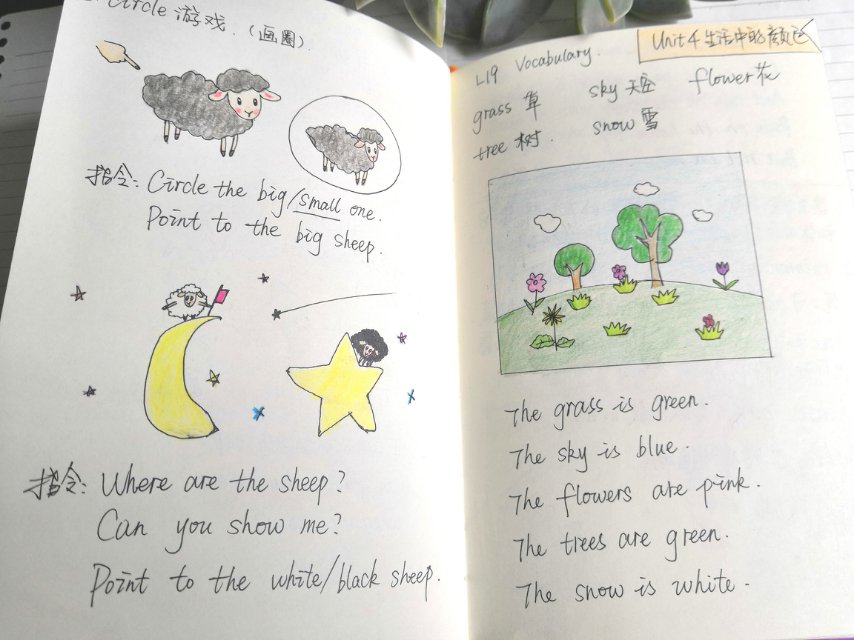 Circle 游戏.（画圈）.
指令: Circle the big/small one.
Point to the big sheep.
指令: Where are the sheep?
Can you show me?
Point to the white/black sheep.
Unit 4 生活中的颜色
L19 Vocabulary.
grass 草 sky 天空 flower 花
tree 树. snow 雪
The grass is green.
The sky is blue.
The flowers are pink.
The trees are green.
The snow is white.